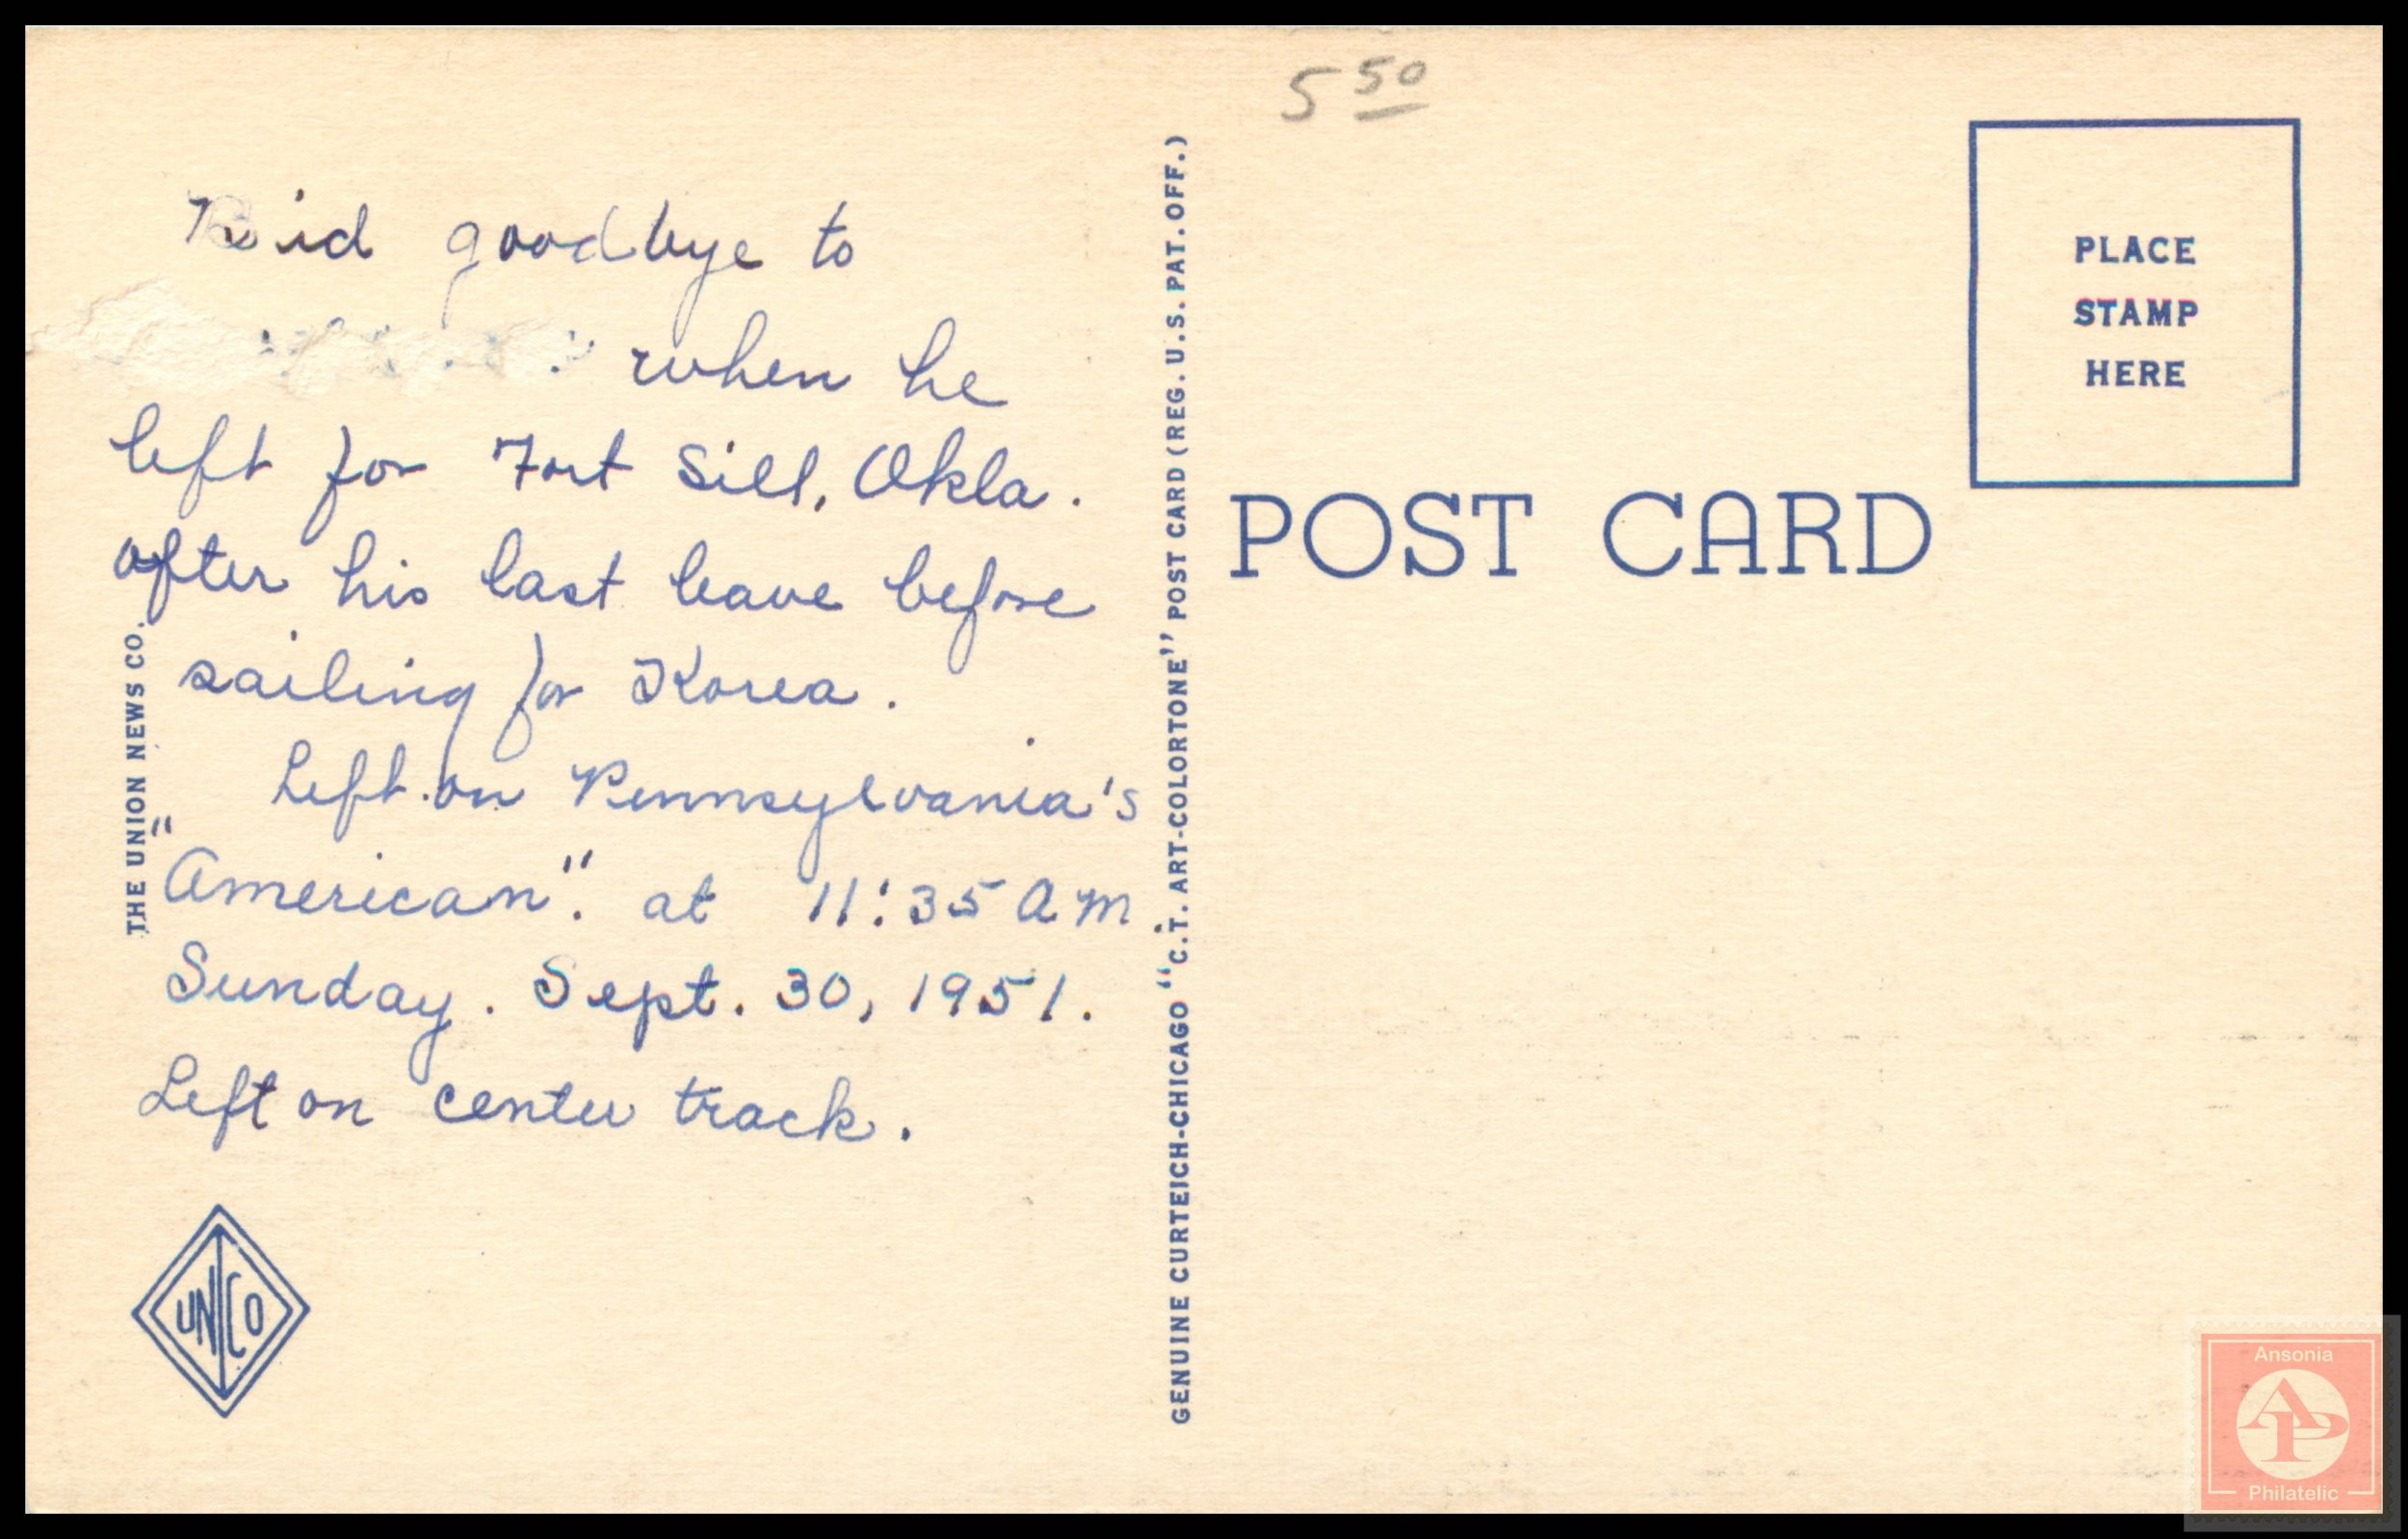 5 50
Bid goodbye to
when he
left for Fort Sill, Okla.
after his last leave before
sailing for Korea.
Left on Pennsylvania's
"American". at 11:35 AM.
Sunday. Sept. 30, 1951.
Left on center track.
THE UNION NEWS CO.
UN CO
GENUINE CURTEICH-CHICAGO "C.T. ART-COLORTONE" POST CARD (REG. U.S. PAT. OFF.)
POST CARD
PLACE
STAMP
HERE
Ansonia
AP
Philatelic